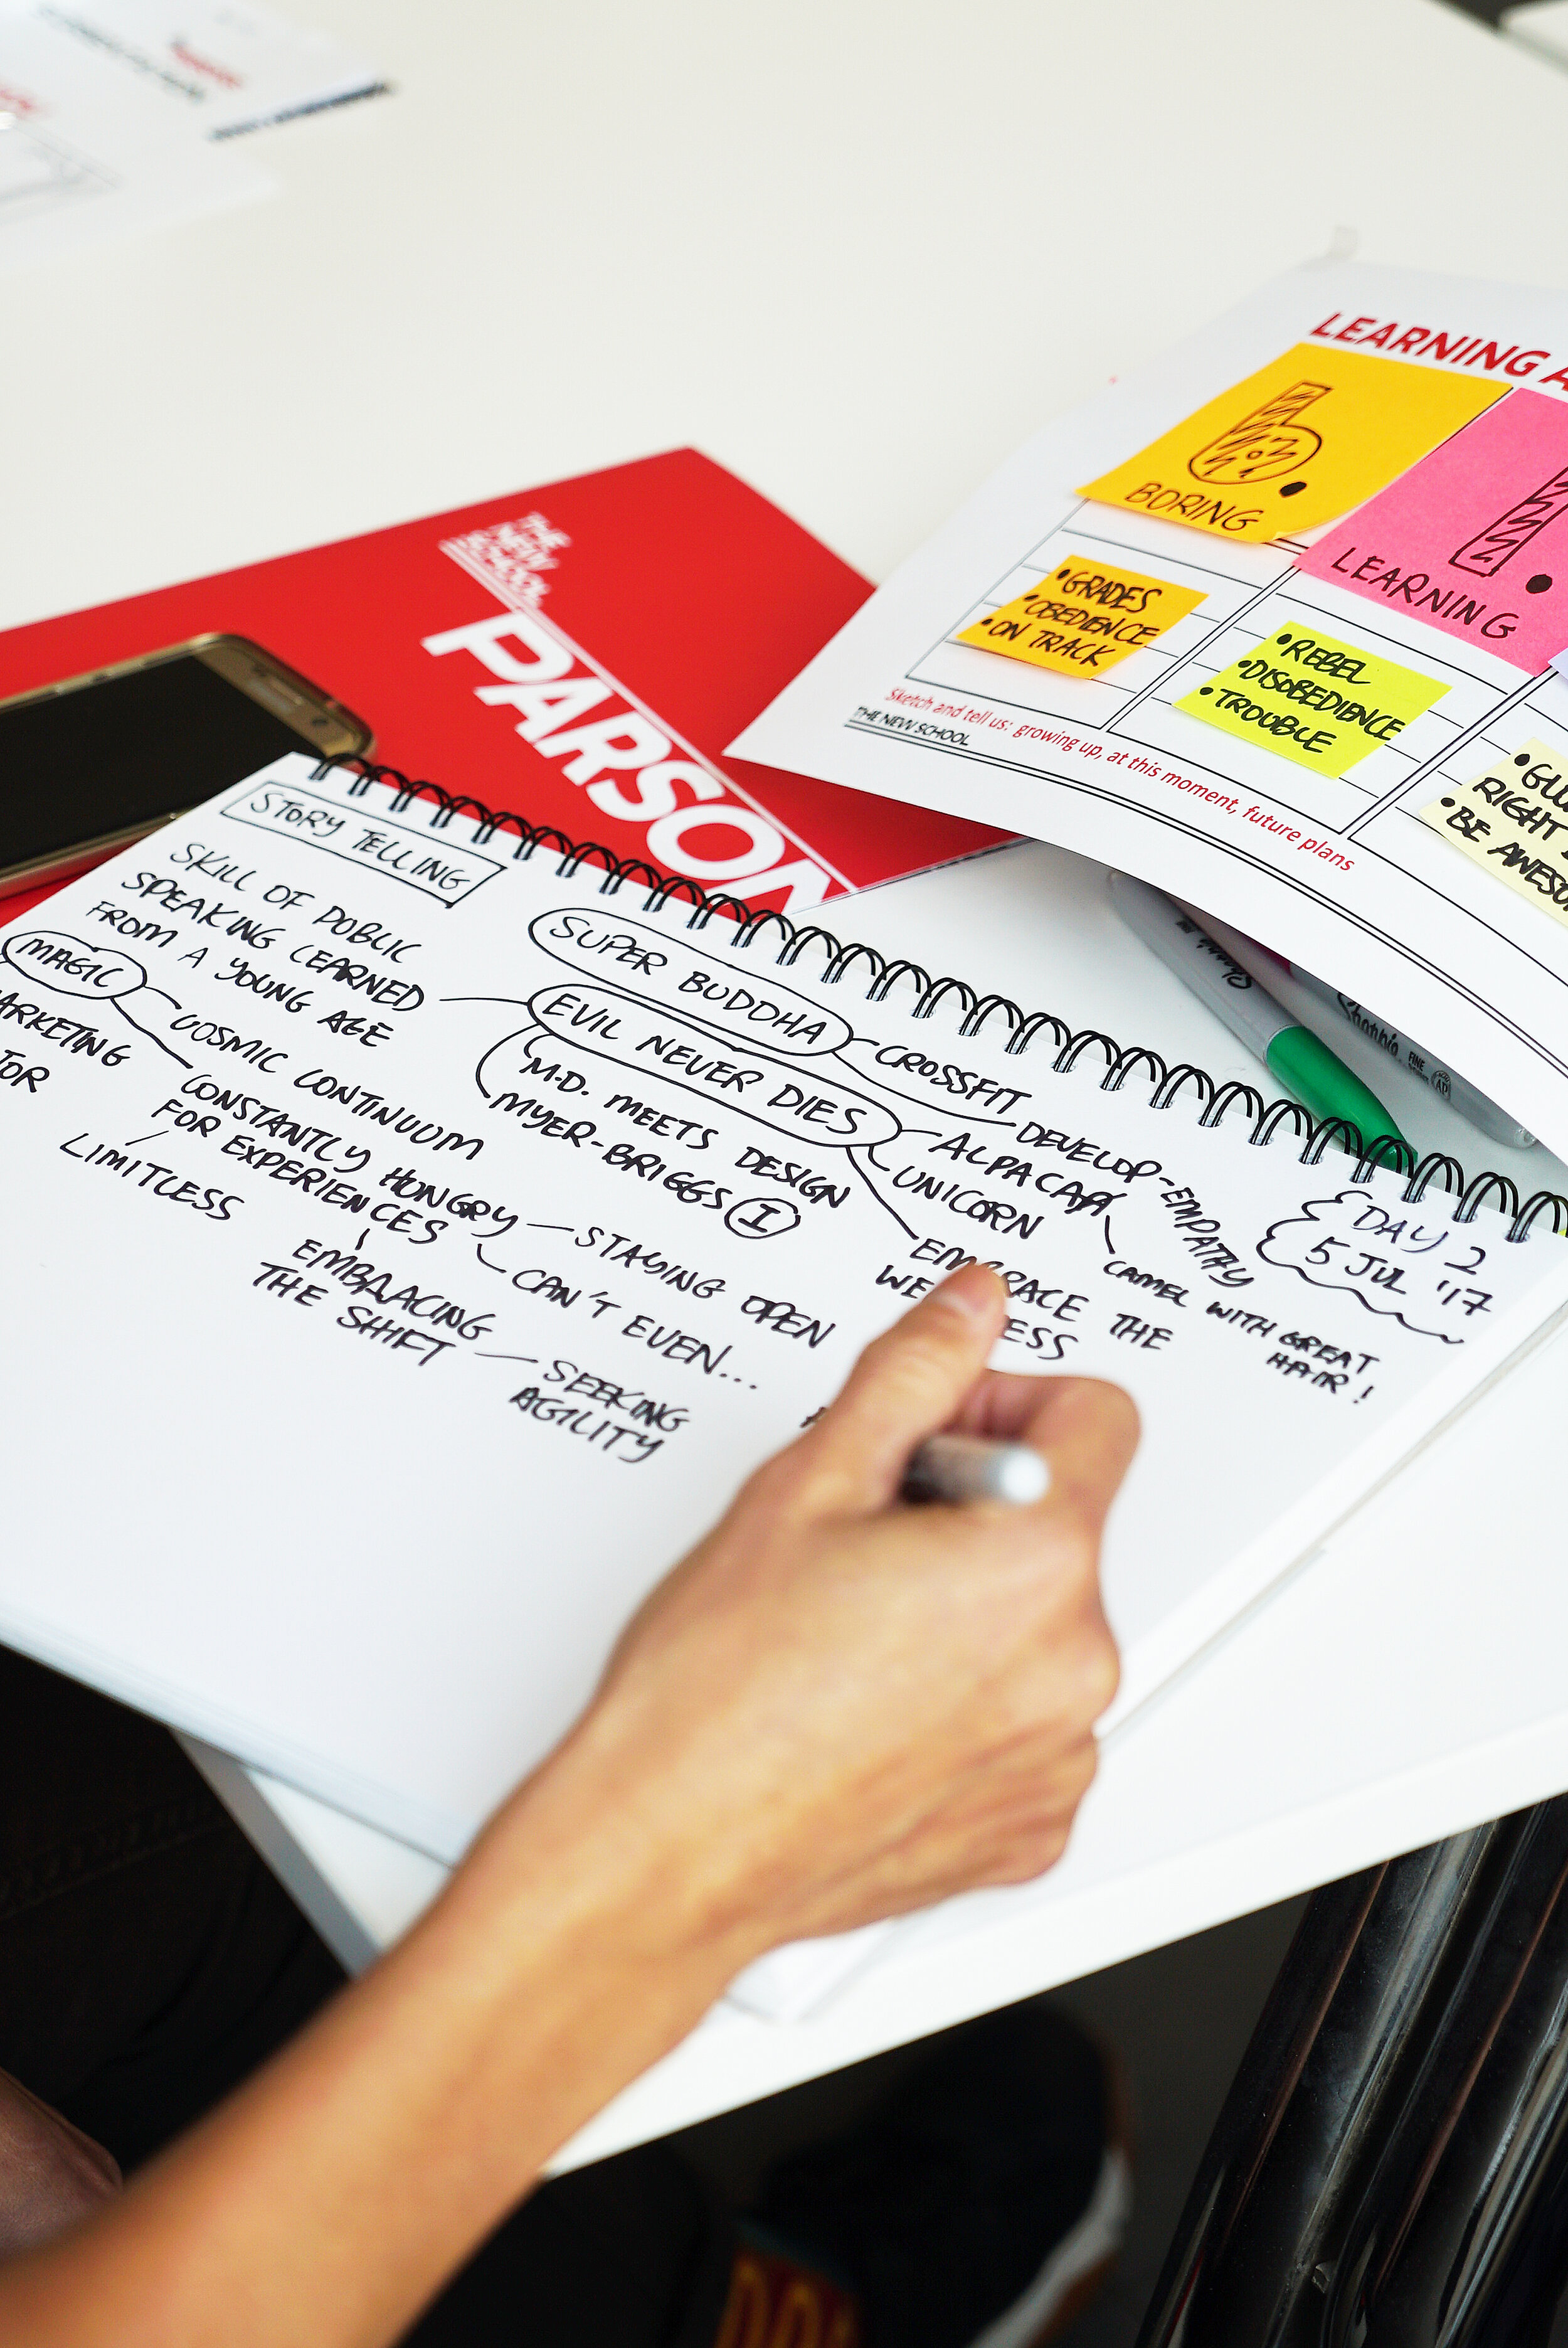 LEARNING
BORING
LEARNING
•GRADES
•OBEDIENCE
•ON TRACK
•REBEL
•DISOBEDIENCE
•TROUBLE
RIGHT
•BE
Sketch and tell us: growing up, at this moment, future plans
THE NEW SCHOOL
THE
NEW
SCHOOL
PARSON
Sharpie
Sharpie FINE
STORY TELLING
SKILL OF PUBLIC
SPEAKING LEARNED
FROM A YOUNG AGE
MAGIC
COSMIC CONTINUUM
CONSTANTLY HUNGRY
FOR EXPERIENCES
LIMITLESS
STAYING OPEN
CAN'T EVEN...
EMBRACING
THE SHIFT
SEEKING
AGILITY
SUPER BUDDHA
CROSSFIT
DEVELOP-EMPATHY
EVIL NEVER DIES
M.D. MEETS DESIGN
MYER-BRIGGS I
ALPACA
CAMEL WITH GREAT
HAIR!
UNICORN
EMBRACE THE
DAY 2
5 JUL '17